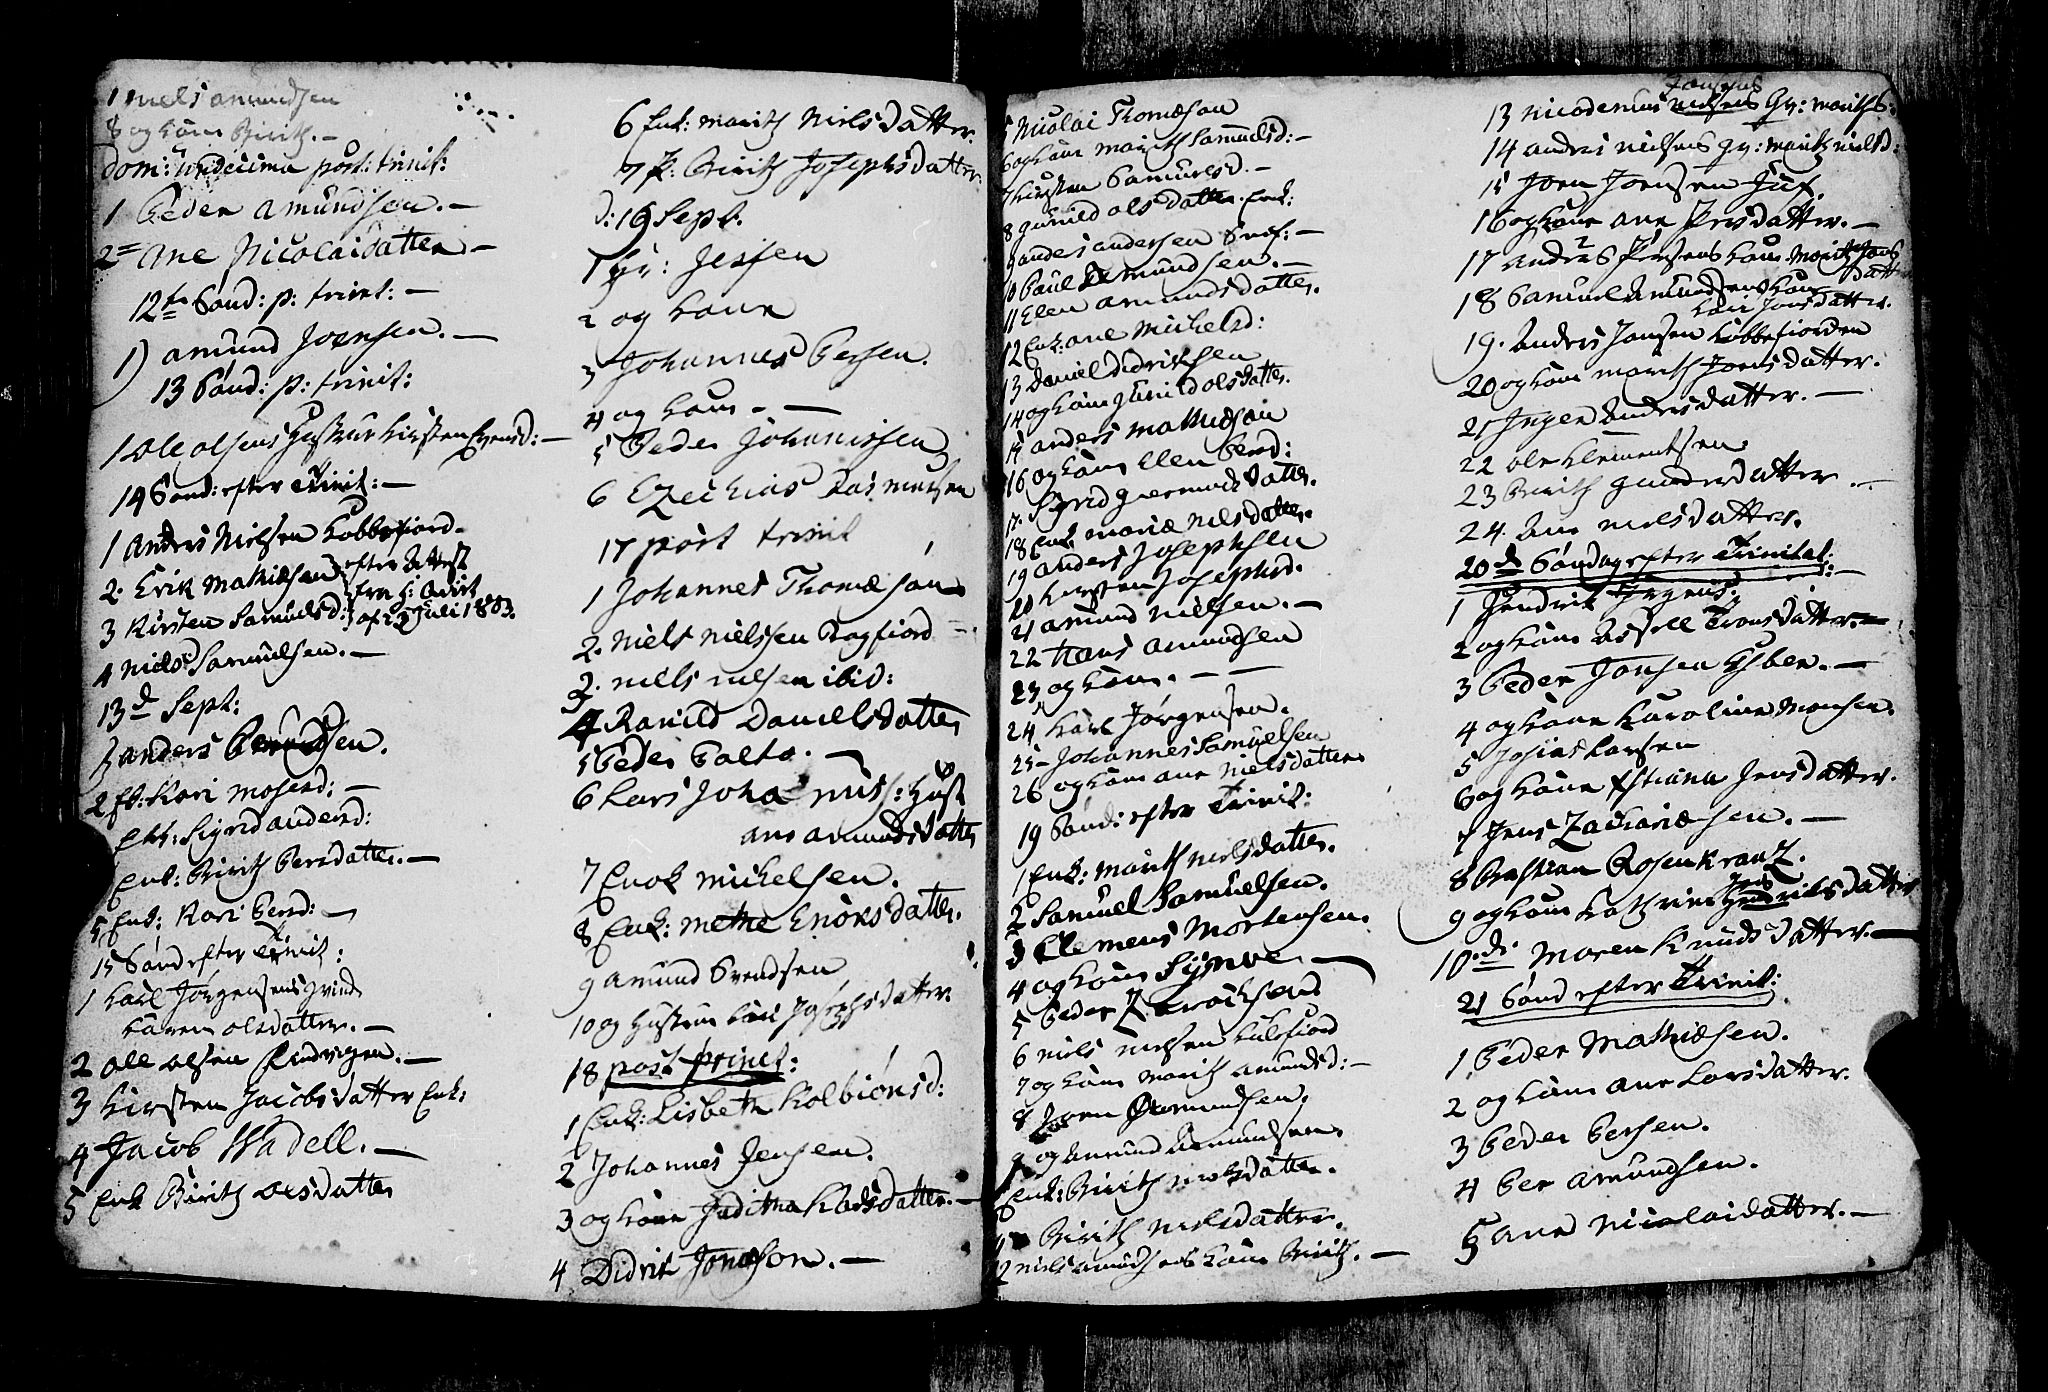 1 Niels Amundsen
8 og Kone Birith. —
Dom: undecima post: trinit:
1 Peder Amundsen. —
2 Ane Nicolaidatter —
12te Sønd: p: trinit: —
1) Amund Joensen. —
13 Sønd: p: trinit:
1 Ole Olsens Hustrue Kirsten Evensd: —
14 Sønd: efter Trinit: —
1 Anders Nielsen Kobbefiord.
2. Erik Mathisen efter Attest
3 Kirsten Samuelsd: fra H: Qvist af 23 Juli 1803.
4 Niels Samuelsen. —
13d Sept:
1 Anders
2 Et: Kari Mosesd: —
Enk: Sigrid Andersd:
Enk: Birith Persdatter. —
5 Enk: Kari Persd: —
15 Sønd efter Trinit:
1 Karl Jørgensens qvinde
Karen Olsdatter. —
2 Ole Olsen —
3 Kirsten Jacobsdatter Enk:
4 Jacob Wadell. —
5 Enk Birith Olsdatter
6 Enk: Marith Nielsdatter.
7 P: Birith Josephsdatter
d: 19 Sept.
1 Hr: Jessen
2 og Kone
3 Johannes Persen.
4 og Kone. —
5 Peder Johannissen
6 Ezechias Rasmussen
17 post trinit
1 Johannes Thomæson
2. Niels Nielssen Bagfiord —
3. Niels Nielsen ibid:
4 Ranild Danielsdatter
5 Peder Balto. —
6 Lars Johannis: Hust
Ane Amundsdatter
7 Enok Michelsen.
8 Enk: Mette Enoksdatter.
9 Amund Svendsen
10 og Hustrue Kari Josephsdatter
18 post trinit:
1 Enk: Lisbeth Kolbiónsd:
2 Johannes Jensen.
3 og Kone Juditha Klasdatter. —
4 Didrik Jonæson. —
5 Nicolai Thomæson
6 og Kone Marith Samuelsd: —
7 Kirsten Samuelsd. —
8 Gunild Olsdatter. Enk:
9 Anders Andersen Snef: —
10 Poul Amundsen. —
11 Elen Amundsdatter.
12 Enk: Ane Michelsd:
13 Daniel Didriksen
14 og Kone Gunild Olsdatter.
15 Anders Mathisen
16 og Kone Elen Persd:
17. Sigrid Guermundsdatter.
18 Enk Mariæ Nielsdatter.
19 Anders Josephsen
20 Kirsten Josephsd.
21 Amund Nielsen. —
22 Hans Amundsen
23 og Kone. — —
24 Karl Jørgensen.
25 — Johannes Samuelsen
26 og Kone Ane Nielsdatter
19 Sønd: efter Trinit:
1 Enk: Marith Nielsdatter.
2 Samuel Samuelsen.
3 Clemens Mortensen.
4 og Kone Synve. —
5 Peder Z. Brochsen
6 Niels Nielsen Kulfiord
7 og Kone Marith Amundsd: —
8 Joen Guermundsen.
9 og Amund Amundsen.
Enk: Birith Nielsdatter.
11 Birith Nielsdatter.
12 Niels Amundsens Kone Birith. —
Jonsens
13 Nicodemus Nielsens Gr: Marith S:
14 Anders Nielsens Gr: Marith Nielsd:
15 Joen Joensen Juf.
16 og Kone Ane Persdatter. —
17 Anders Persens Kone Marith Jons
datt
18 Samuel Amundsens Kone
Kari Jonsdatter.
19. Anders Jonsen Kobbefiorden
20 og Kone Marith Joensdatter.
21 Inger Andersdatter. —
22 Ole Klementsen
23 Birith Gundersdatter —
24. Ane Nielsdatter.
20de Søndag efter Trinitat: —
1 Hendrik Jørgens.
2 og Kone Assell Tronsdatter. —
3 Peder Jonsen Esben. —
4 og Kone Karoline Monsen.
5 Josias Larsen
6 og Kone Xstiana Jensdatter.
7 Jens Zachariæsen. —
8 Bastian Rosenkrantz.
9 og Kone Kathrine Hendriksdatter
10.de Maren Knudsdatter. —
21 Sønd efter Trinit:
1 Peder Mathiesen.
2 og Kone Ane Larsdatter.
3 Peder Persen.
4 Per Amundsen.
5 Ane Nicolaidatter. —